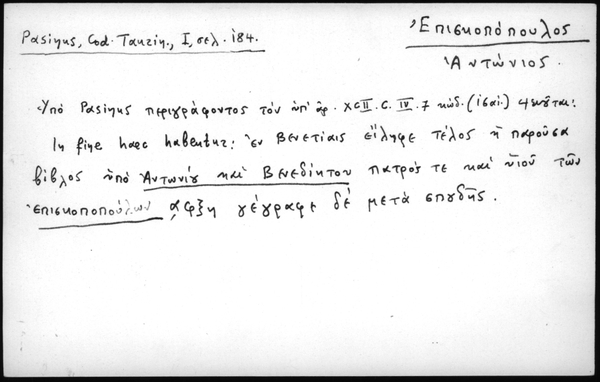 Pasinus, Cod. Taurin., I, σελ. 184.
Ἐπισκοπόπουλος
Ἀντώνιος.
Ὑπὸ Pasinus περιγράφοντος τὸν ὑπ' ἀρ. XCII. C. IV. 7 κώδ. (ἰσαι.)
In fine haec habentur: Ἐν Βενετίαις εἴληφε τέλος ἡ παροῦσα
βίβλος ὑπὸ Ἀντωνίου καὶ Βενεδίκτου πατρός τε καὶ υἱοῦ τῶν
Ἐπισκοποπούλων ͵αφξη γέγραφε δέ μετὰ σπουδῆς.